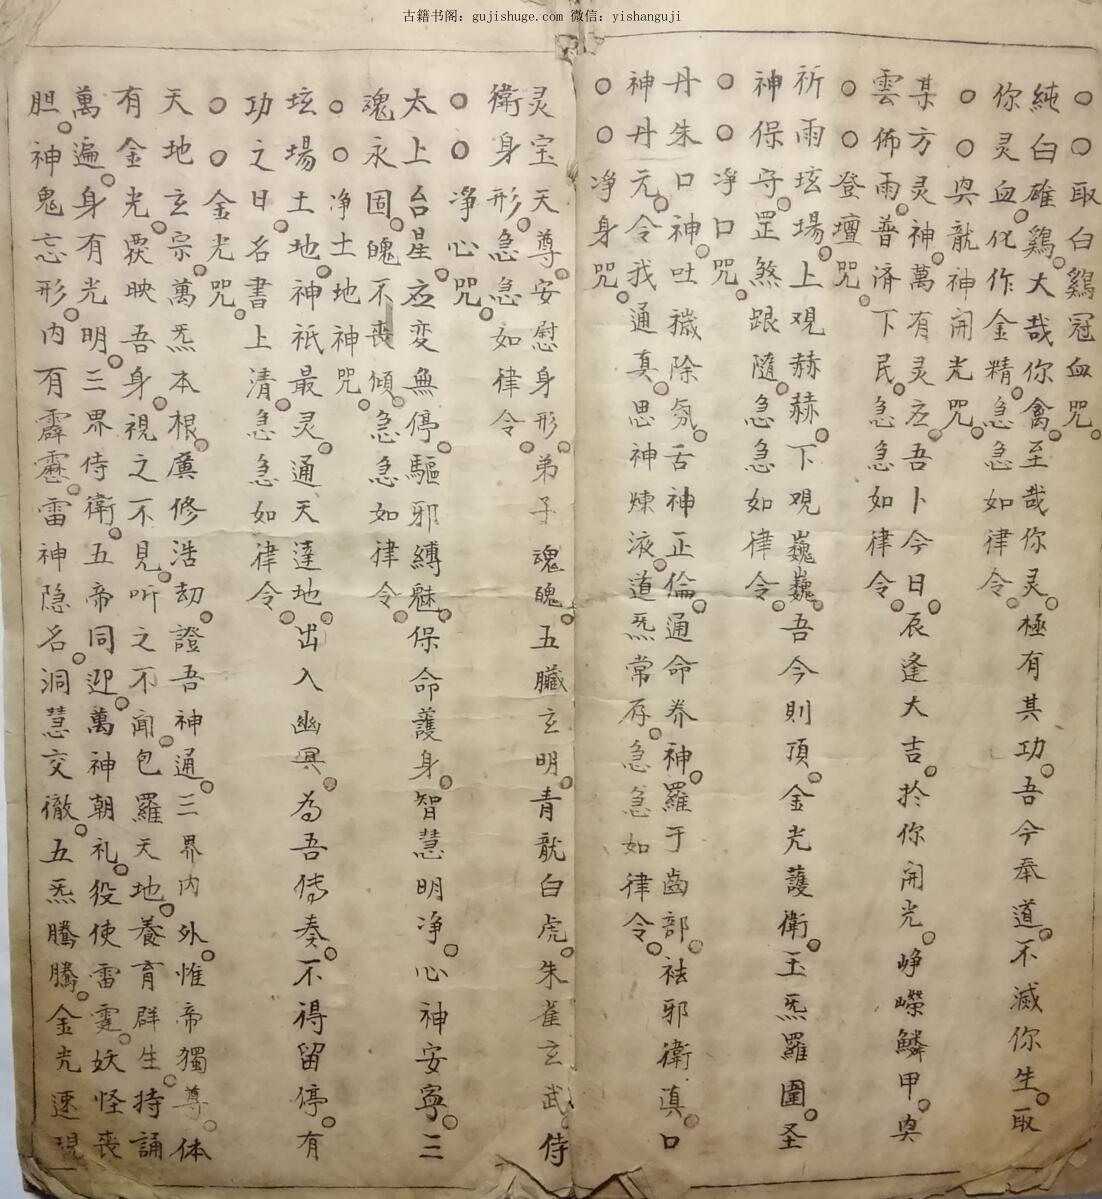 古籍书阁：gujishuge.com 微信：yishanguji
○○取白鷄冠血咒。
純白雄鷄。大哉你禽。至哉你灵。極有其功。吾今奉道。不滅你生。取
你灵血。化作金精。急急如律令。
○○與龍神開光咒。
某方灵神。萬有灵应。吾卜今日。辰逢大吉。於你開光。峥嶸鱗甲。與
雲佈雨。普済下民。急急如律令。
○○登壇咒。
祈雨坛場。上观赫赫。下观巍巍。吾今則頂。金光護衛。玉炁羅圍。圣
神保守。罡煞跟隨。急急如律令。
○○净口咒。
丹朱口神。吐穢除氛。舌神正倫。通命养神。羅于齒部。祛邪衛真。口
神丹元。令我通真。思神煉液。道炁常存。急急如律令。
○○净身咒。
灵宝天尊。安慰身形。弟子魂魄。五臟玄明。青龍白虎。朱雀玄武。侍
衛身形。急急如律令。
○○净心咒。
太上台星。应变無停。驅邪縛魅。保命護身。智慧明净。心神安寧。三
魂永固。魄不喪傾。急急如律令。
○○净土地神咒。
坛場土地。神祇最灵。通天達地。出入幽冥。為吾傳奏。不得留停。有
功之日。名書上清。急急如律令。
○○金光咒。
天地玄宗。萬炁本根。廣修浩劫。證吾神通。三界内外。惟帝獨尊。体
有金光。覆映吾身。視之不見。听之不闻。包羅天地。養育群生。持誦
萬遍。身有光明。三界侍衛。五帝同迎。萬神朝礼。役使雷霆。妖怪喪
胆。神鬼忘形。内有霹靂。雷神隐名。洞慧交徹。五炁騰騰。金光速現